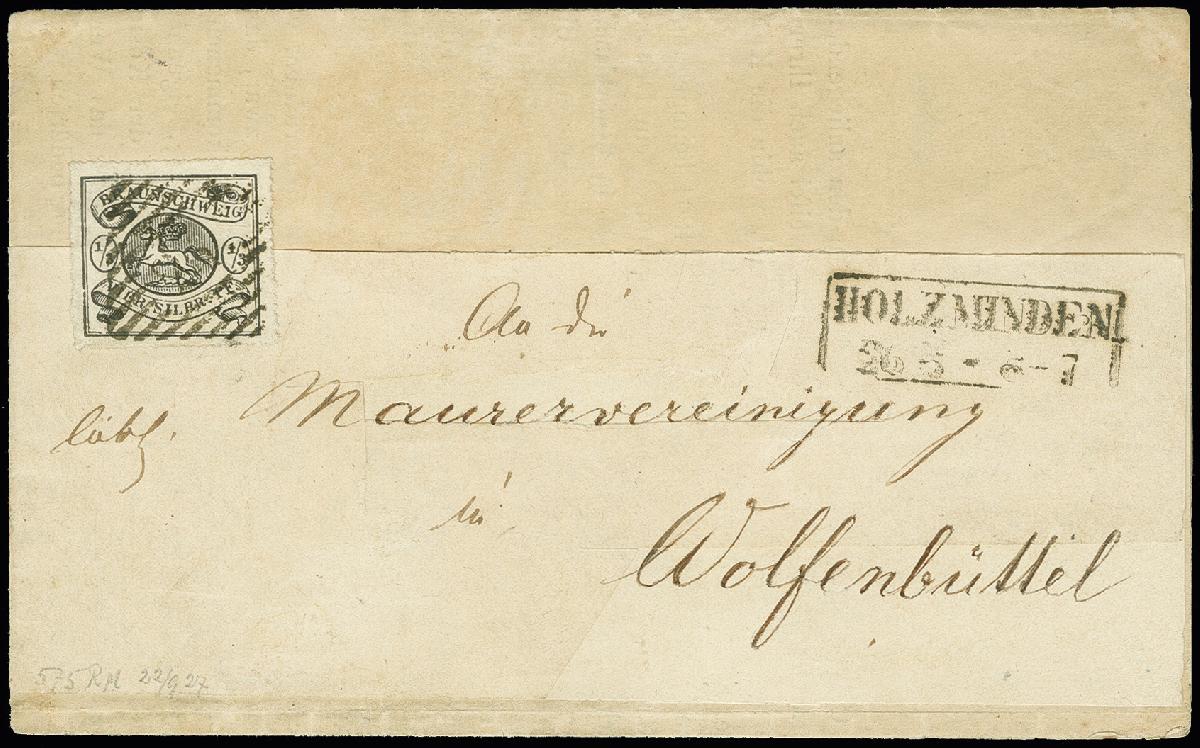 BRAUNSCHWEIG
1/3 1/3
HOLZMINDEN
An die
löbl. Maurervereinigung
in
Wolfenbüttel
575 RM 22/9 27